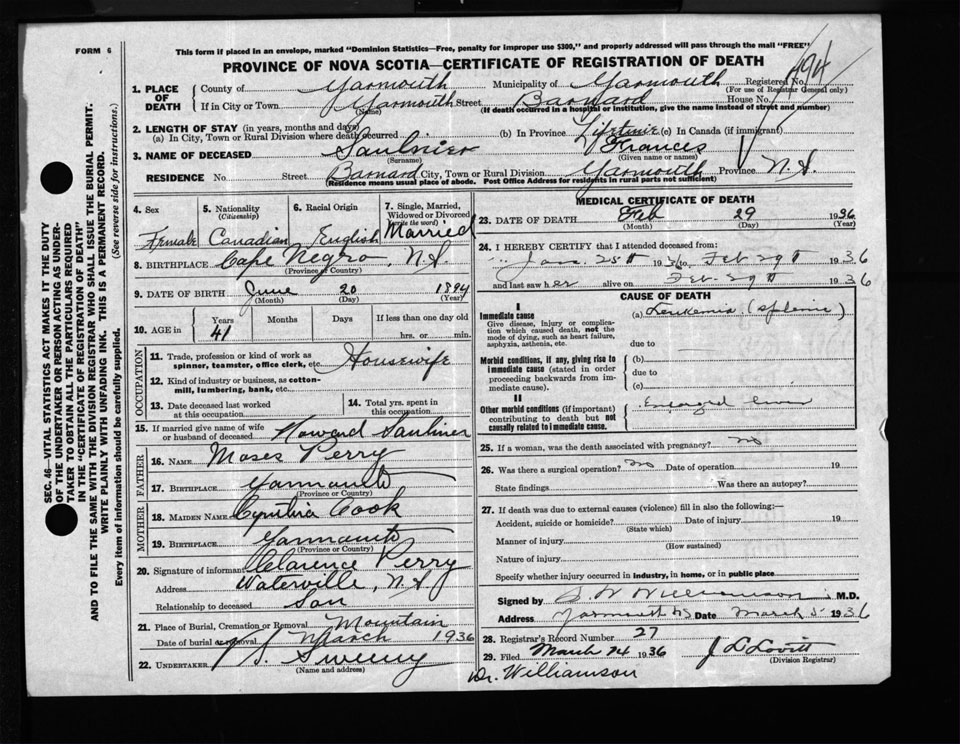 FORM 6
This form if placed in an envelope, marked "Dominion Statistics—Free, penalty for improper use $300," and properly addressed will pass through the mail "FREE"
PROVINCE OF NOVA SCOTIA—CERTIFICATE OF REGISTRATION OF DEATH
SEC. 46—VITAL STATISTICS ACT MAKES IT THE DUTY
OF THE UNDERTAKER OR PERSON ACTING AS UNDER-
TAKER TO OBTAIN ALL THE PARTICULARS REQUIRED
IN THE "CERTIFICATE OF REGISTRATION OF DEATH"
AND TO FILE THE SAME WITH THE DIVISION REGISTRAR WHO SHALL ISSUE THE BURIAL PERMIT.
WRITE PLAINLY WITH UNFADING INK. THIS IS A PERMANENT RECORD.
Every item of information should be carefully supplied. (See reverse side for instructions.)
1. PLACE OF DEATH County of Yarmouth Municipality of Yarmouth Registered No. 494
(For use of Registrar General only)
If in City or Town Yarmouth Street Barnard House No.
(Name) (If death occurred in a hospital or institution, give the name instead of street and number)
2. LENGTH OF STAY (in years, months and days)
(a) In City, Town or Rural Division where death occurred (b) In Province Lifetime (c) In Canada (if immigrant)
3. NAME OF DECEASED Saulnier Frances
(Surname) (Given name or names)
RESIDENCE No. Street Barnard City, Town or Rural Division Yarmouth Province N.S.
(Residence means usual place of abode. Post Office Address for residents in rural parts not sufficient)
4. Sex 5. Nationality (Citizenship) 6. Racial Origin 7. Single, Married, Widowed or Divorced (write the word)
Female Canadian English Married
8. BIRTHPLACE Cape Negro, N.S.
(Province or Country)
9. DATE OF BIRTH June 20 1894
(Month) (Day) (Year)
10. AGE in Years Months Days If less than one day old
41 hrs. or min.
OCCUPATION
11. Trade, profession or kind of work as spinner, teamster, office clerk, etc. Housewife
12. Kind of industry or business, as cotton-mill, lumbering, bank, etc.
13. Date deceased last worked at this occupation 14. Total yrs. spent in this occupation
15. If married give name of wife or husband of deceased Howard Saulnier
FATHER
16. NAME Moses Perry
17. BIRTHPLACE Yarmouth
(Province or Country)
MOTHER
18. MAIDEN NAME Cynthia Cook
19. BIRTHPLACE Yarmouth
(Province or Country)
20. Signature of informant Clarence Perry
Address Waterville, N.S
Relationship to deceased Son
21. Place of Burial, Cremation or Removal Mountain
Date of burial or removal March 1936
22. UNDERTAKER V. S. Sweeny
(Name and address)
MEDICAL CERTIFICATE OF DEATH
23. DATE OF DEATH Feb 29 1936
(Month) (Day) (Year)
24. I HEREBY CERTIFY that I attended deceased from:
Jan. 25th 1936 to Feb 29th 1936
and last saw her alive on Feb. 29th 1936
CAUSE OF DEATH
I
Immediate cause (a) Leukemia (splenic)
Give disease, injury or complication which caused death, not the mode of dying, such as heart failure, asphyxia, asthenia, etc.
due to
Morbid conditions, if any, giving rise to immediate cause (stated in order proceeding backwards from immediate cause). (b)
due to
(c)
II
Other morbid conditions (if important) contributing to death but not causally related to immediate cause. Enlarged liver
25. If a woman, was the death associated with pregnancy? no
26. Was there a surgical operation? no Date of operation 19
State findings Was there an autopsy?
27. If death was due to external causes (violence) fill in also the following:—
Accident, suicide or homicide? Date of injury 19
(State which)
Manner of injury
(How sustained)
Nature of injury
Specify whether injury occurred in industry, in home, or in public place
Signed by S. W. Williamson M.D.
Address Yarmouth NS Date March 5 1936
28. Registrar's Record Number 27
29. Filed March 24 1936 J L Lovitt
(Division Registrar)
Dr. Williamson